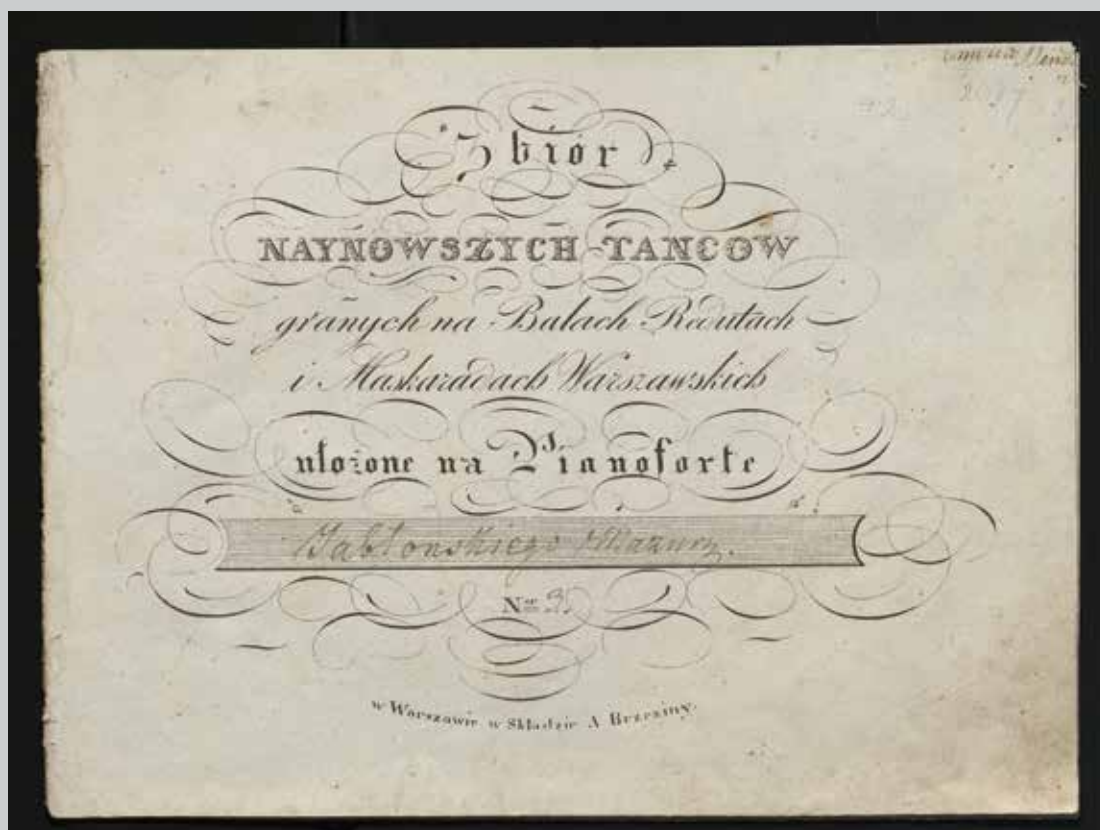 2027
Zbiór
NAYNOWSZYCH TAŃCÓW
granych na Balach Redutach
i Maskaradach Warszawskich
ułożone na Pianoforte
Jabłonskiego Mazury.
Nro 3.
w Warszawie w Składzie A Brzeziny.